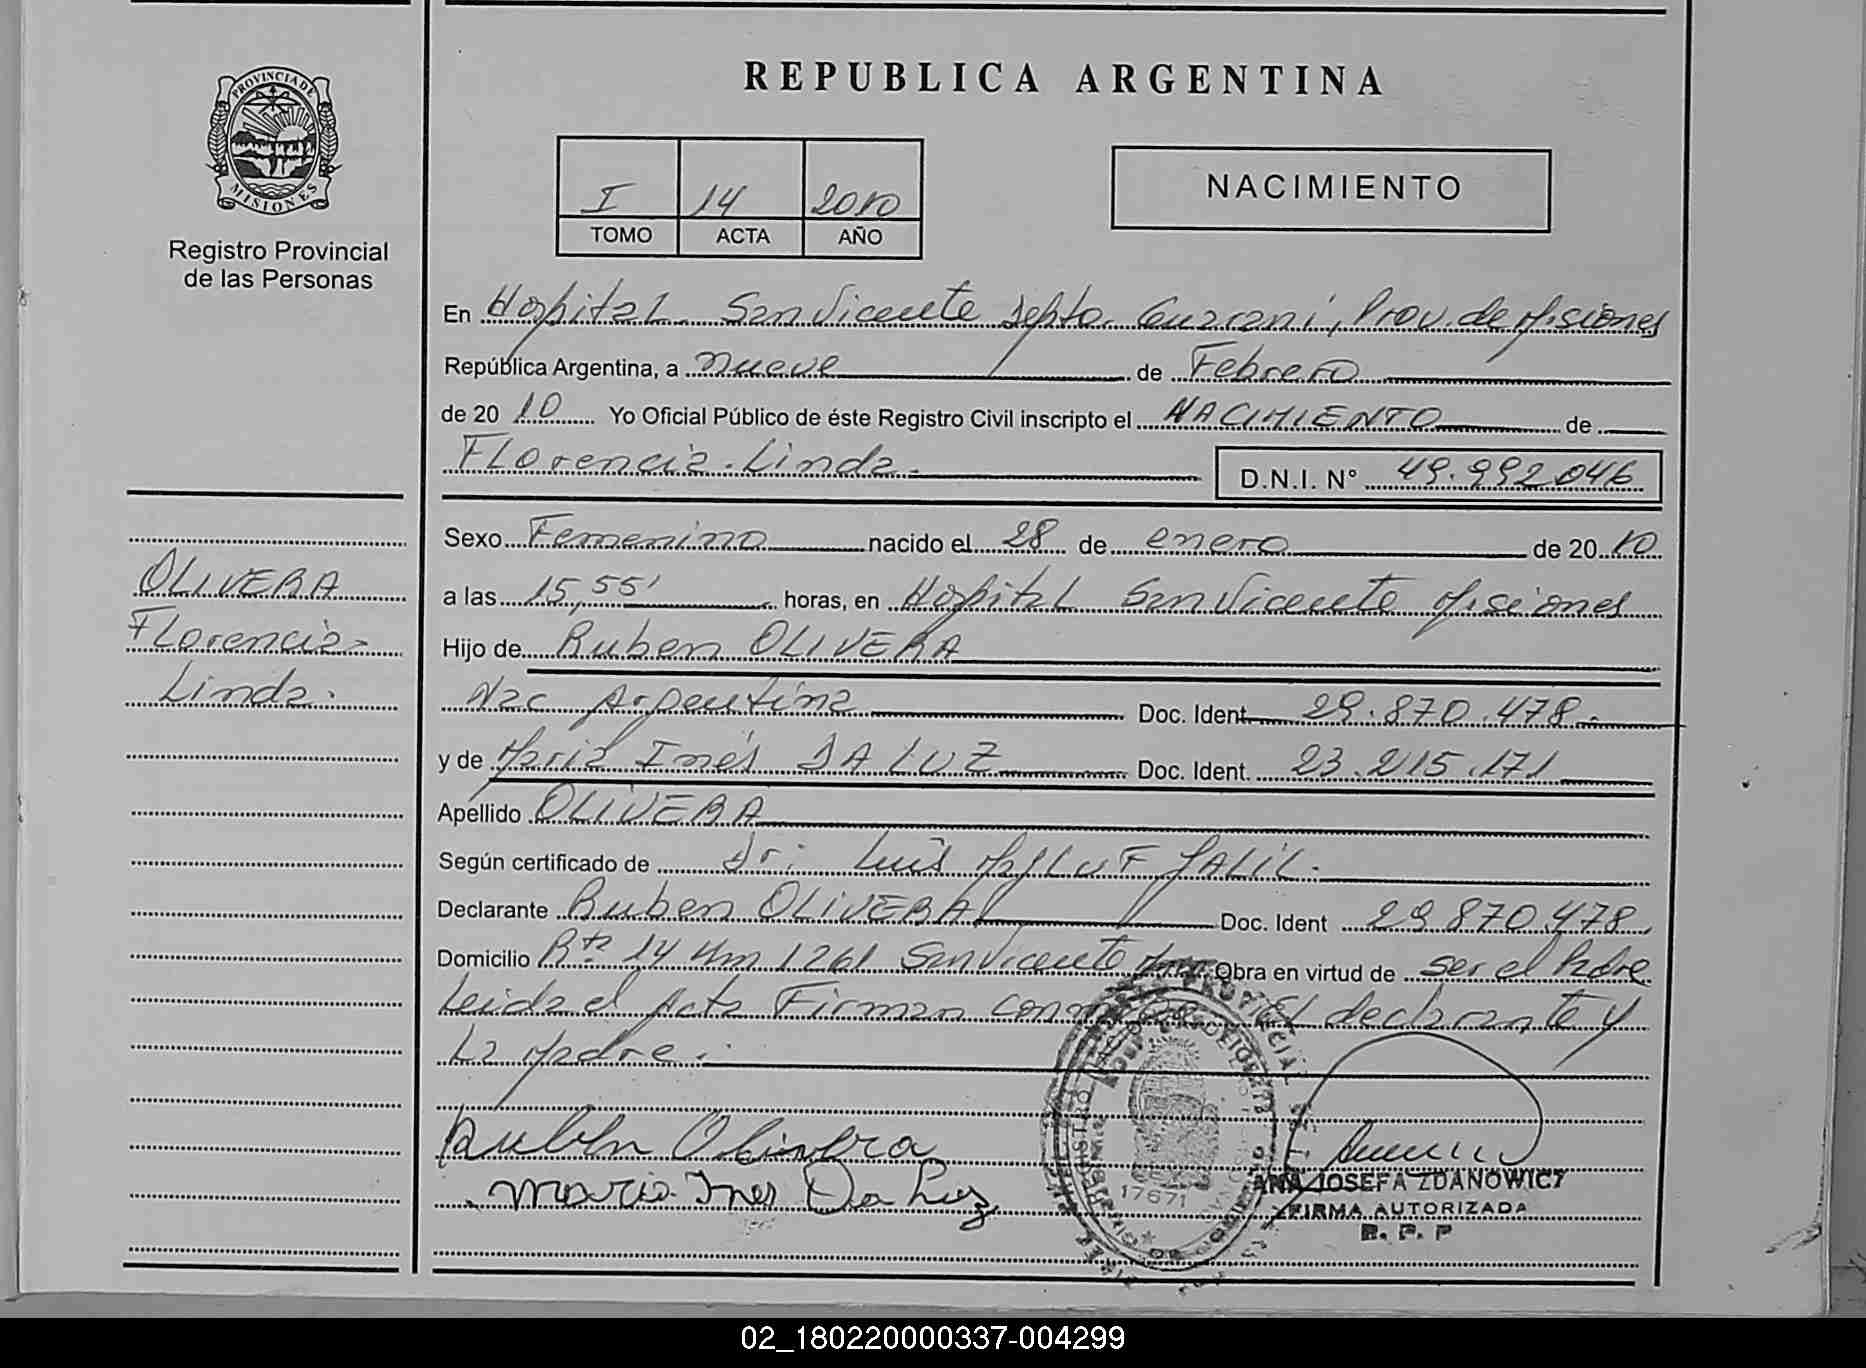 PROVINCIA DE
MISIONES
Registro Provincial
de las Personas
OLIVERA
Florencia
Linda.
REPUBLICA ARGENTINA
I 14 2010
TOMO ACTA AÑO
NACIMIENTO
En Hospital San Vicente Depto. Guarani, Prov. de Misiones
República Argentina, a nueve de Febrero
de 20 10 Yo Oficial Público de éste Registro Civil inscripto el NACIMIENTO de
Florencia Linda. D.N.I. N° 49.992046
Sexo Femenino nacido el 28 de enero de 20 10
a las 15,55' horas, en Hospital San Vicente Misiones
Hijo de Ruben OLIVERA
Nac Argentina Doc. Ident. 29.870.478
y de Maria Inés DA LUZ Doc. Ident. 23.215.171
Apellido OLIVERA
Según certificado de Dr. Luis JALIL.
Declarante Ruben OLIVERA Doc. Ident 29870478
Domicilio Rta 14 Km 1261 San Vicente Obra en virtud de ser el Padre
Leida el Acta Firman El declarante y
La Madre.
Ruben Olivera
Maria Ines Da Luz
17671
ANA JOSEFA ZDANOWICZ
FIRMA AUTORIZADA
R. P. P
02_180220000337-004299